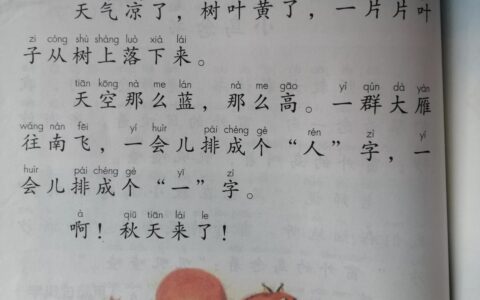 天气凉了，树叶黄了，一片片叶
zi cóng shù shàng luò xià lái
子从树上落下来。
tiān kōng nà me lán nà me gāo yì qún dà yàn
天空那么蓝，那么高。一群大雁
wǎng nán fēi yí huìr pái chéng gè rén zì yí
往南飞，一会儿排成个“人”字，一
huìr pái chéng gè yī zì
会儿排成个“一”字。
à qiū tiān lái le
啊！秋天来了！